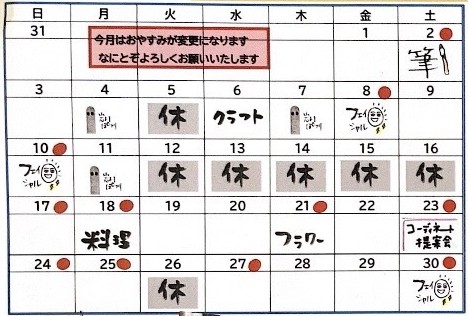 日 月 火 水 木 金 土
31 1 2
今月はおやすみが変更になります
なにとぞよろしくお願いいたします
筆
3 4 5 6 7 8 9
休 クラフト フェイ
シャル
10 11 12 13 14 15 16
フェイ
シャル
休 休 休 休 休
17 18 19 20 21 22 23
料理 フラワー コーディネート
提案会
24 25 26 27 28 29 30
休 フェイ
シャル